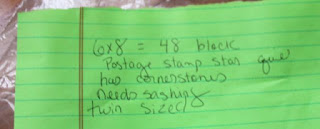 6x8 = 48 block
Postage stamp star
has cornerstones
needs sashing
twin sized